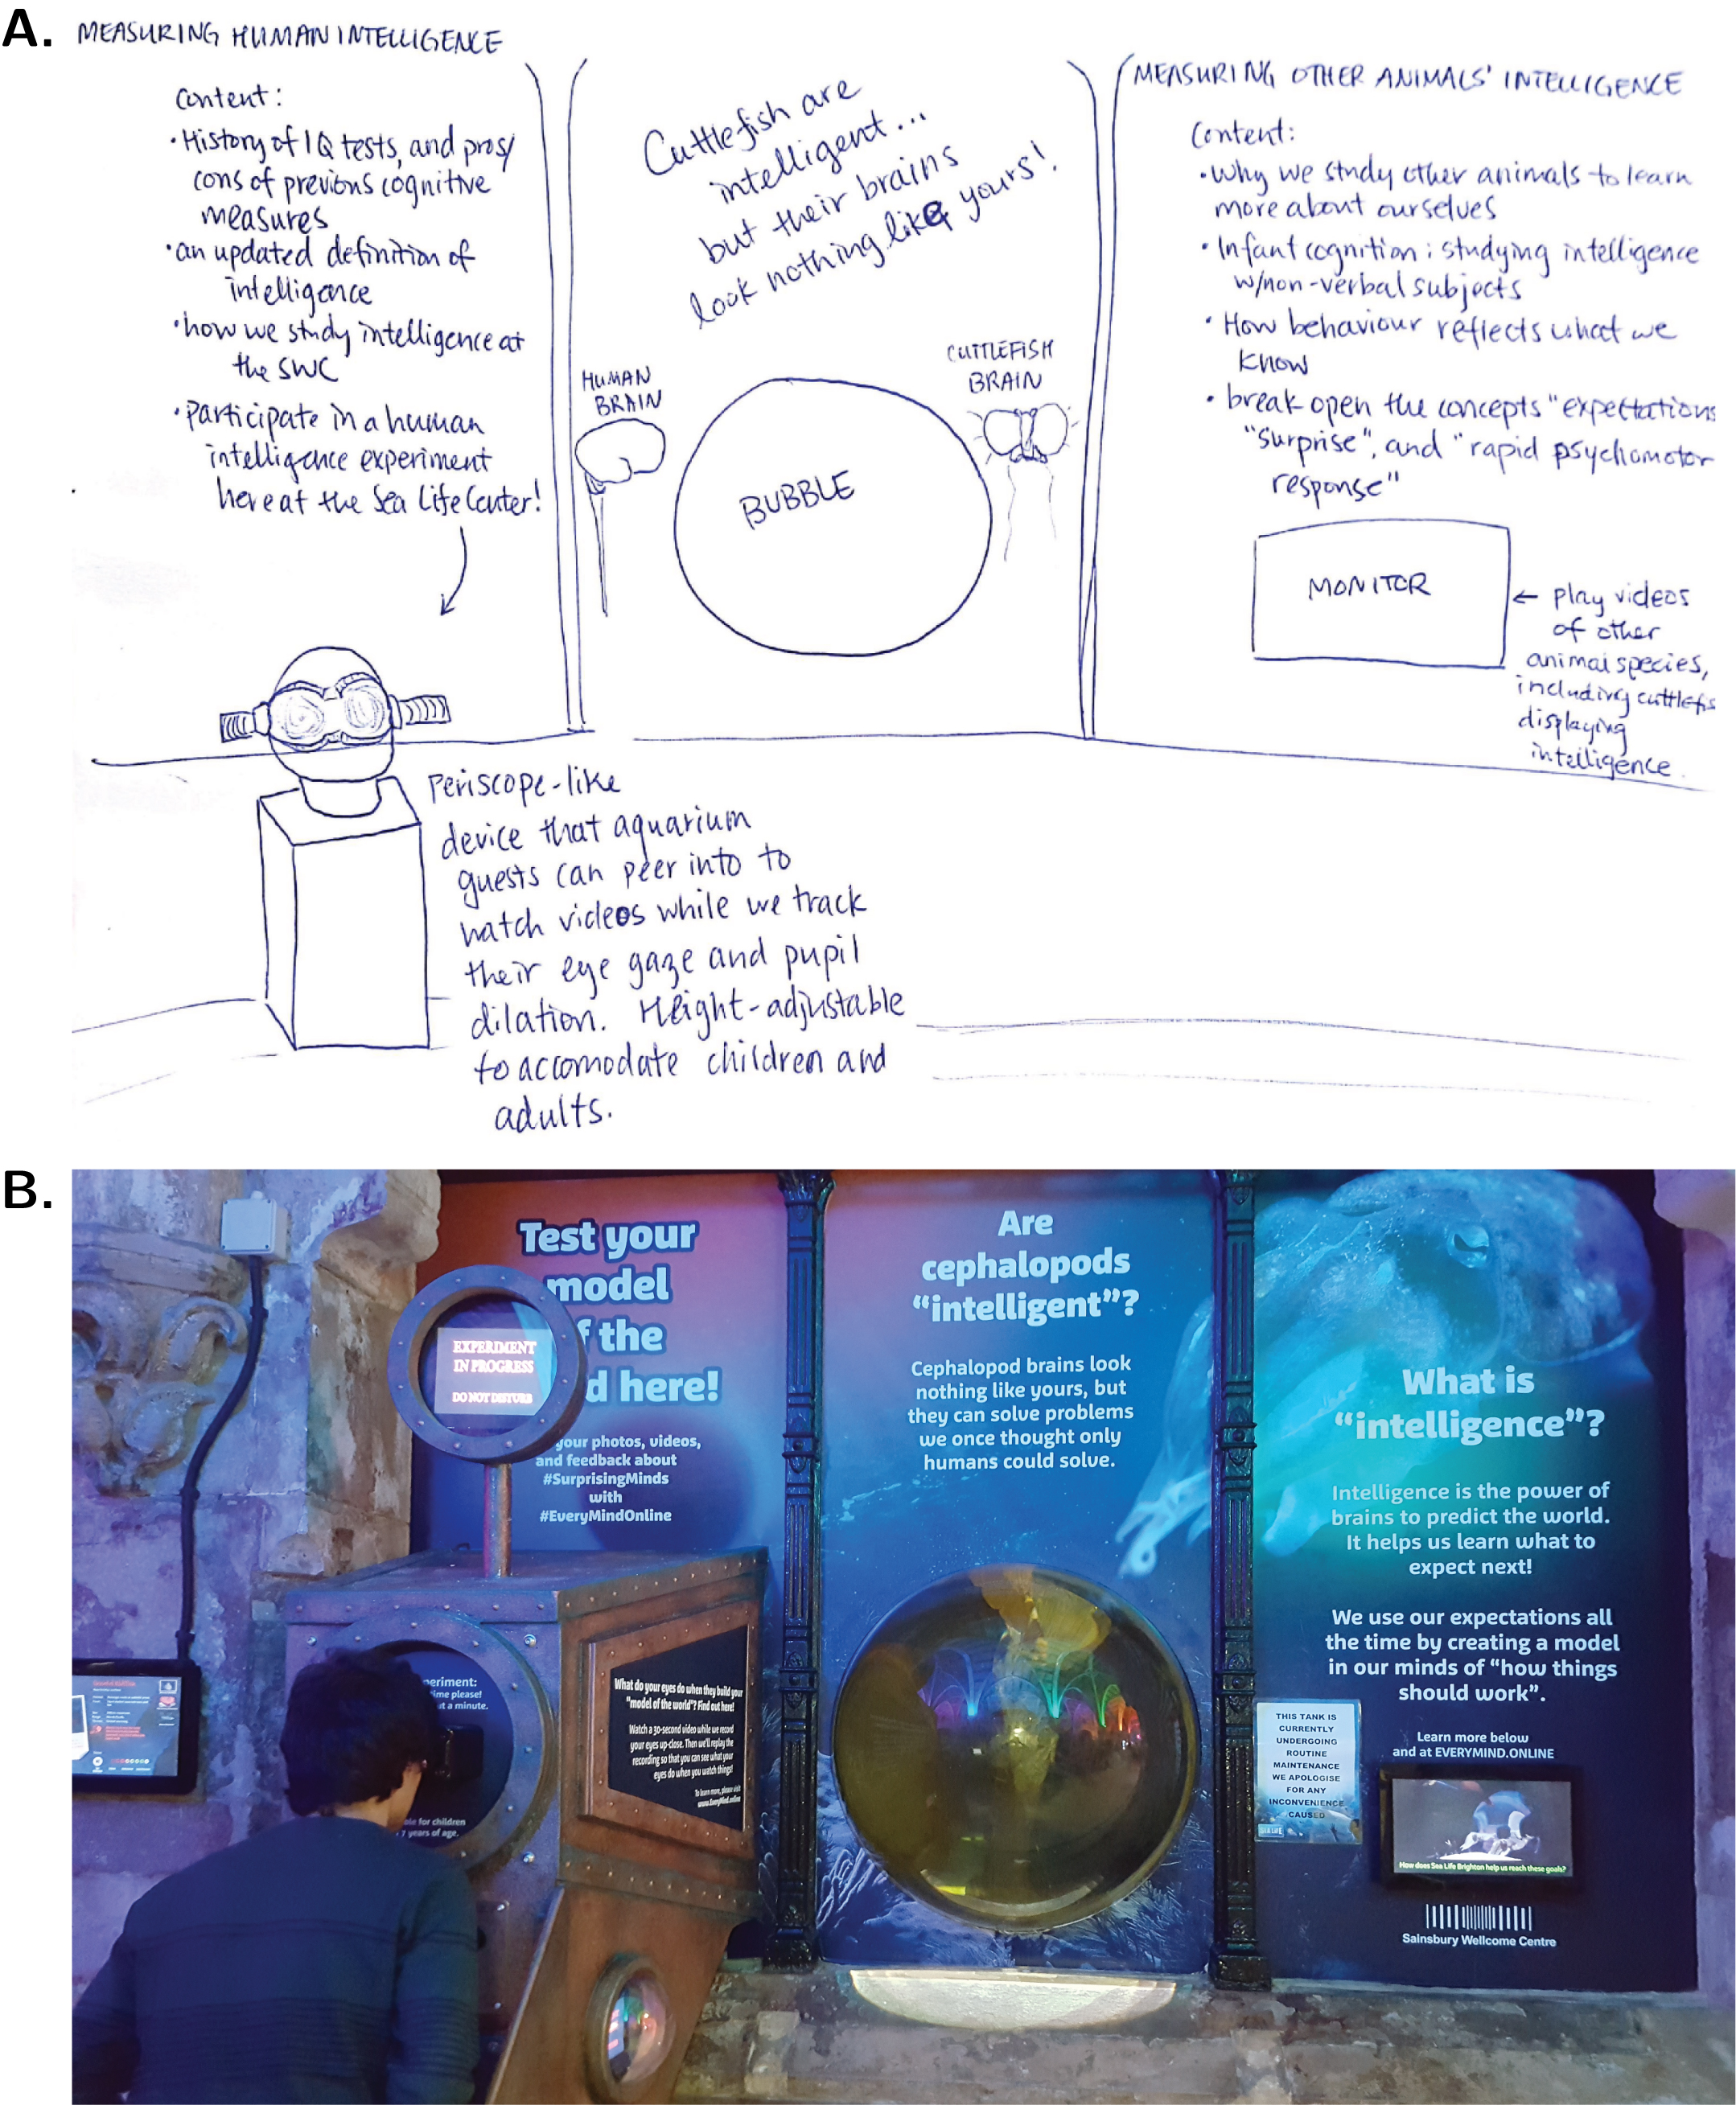 A.
MEASURING HUMAN INTELLIGENCE
Content:
• History of IQ tests, and pros/
cons of previous cognitive
measures
• an updated definition of
intelligence
• how we study intelligence at
the SWC
• Participate in a human
intelligence experiment
here at the Sea Life Center!
Cuttlefish are
intelligent...
but their brains
look nothing like yours!
HUMAN
BRAIN
CUTTLEFISH
BRAIN
BUBBLE
MEASURING OTHER ANIMALS' INTELLIGENCE
Content:
• Why we study other animals to learn
more about ourselves
• Infant cognition: studying intelligence
w/non-verbal subjects
• How behaviour reflects what we
know
• break open the concepts "expectations
"surprise", and "rapid psychomotor
response"
MONITOR
← play videos
of other
animal species,
including cuttlefis
displaying
intelligence.
Periscope-like
device that aquarium
guests can peer into to
watch videos while we track
their eye gaze and pupil
dilation. Height-adjustable
to accomodate children and
adults.
B.
Test your
model
f the
d here!
EXPERIMENT
IN PROGRESS
DO NOT DISTURB
your photos, videos,
and feedback about
#SurprisingMinds
with
#EveryMindOnline
periment:
time please!
ut a minute.
ble for children
7 years of age.
What do your eyes do when they build your
"model of the world"? Find out here!
Watch a 30-second video while we record
your eyes up-close. Then we'll replay the
recording so that you can see what your
eyes do when you watch things!
To learn more, please visit
www.EveryMind.online
Are
cephalopods
“intelligent”?
Cephalopod brains look
nothing like yours, but
they can solve problems
we once thought only
humans could solve.
What is
“intelligence”?
Intelligence is the power of
brains to predict the world.
It helps us learn what to
expect next!
We use our expectations all
the time by creating a model
in our minds of “how things
should work”.
Learn more below
and at EVERYMIND.ONLINE
THIS TANK IS
CURRENTLY
UNDERGOING
ROUTINE
MAINTENANCE
WE APOLOGISE
FOR ANY
INCONVENIENCE
CAUSED
SEA LIFE
How does Sea Life Brighton help us reach these goals?
Sainsbury Wellcome Centre